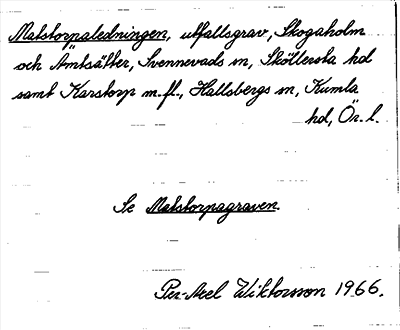 Matstorpaledningen, utfallsgrav, Skogaholm
och Åmtsätter, Svennevads sn, Sköllersta hd
samt Karstorp m.fl., Hallsbergs sn, Kumla
hd, Ör. l.
Se Matstorpagraven.
Per-Axel Wiktorsson 1966.